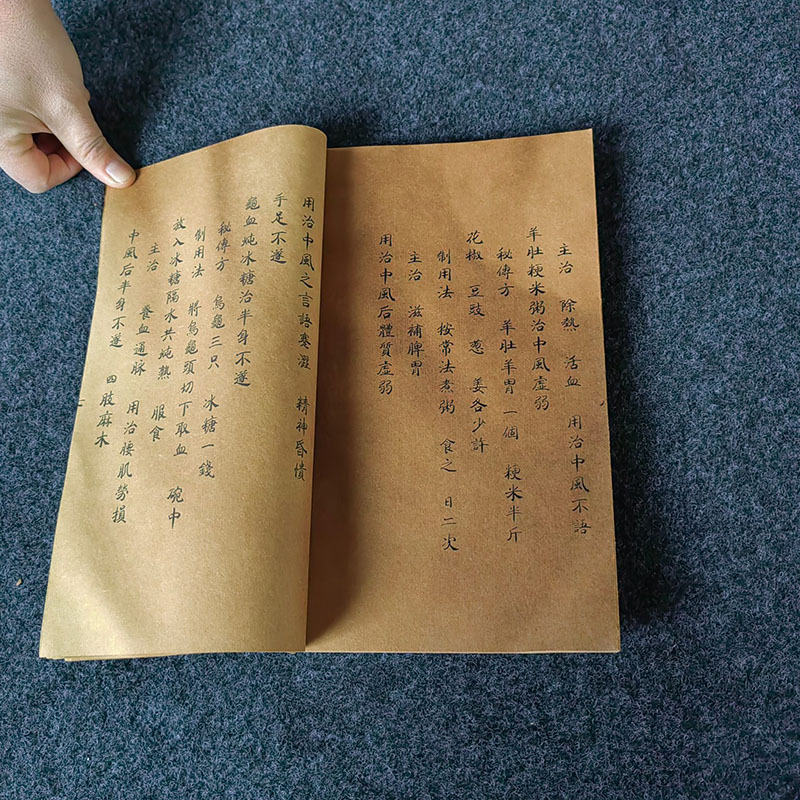 主治 除熱 活血 用治中風不語
羊肚粳米粥治中風虛弱
秘傳方 羊肚羊胃一個 粳米半斤
花椒 豆豉 蔥 姜各少許
制用法 按常法煮粥 食之 日二次
主治 滋補脾胃
用治中風后體質虛弱
用治中風之言語蹇澀 精神昏憒
手足不遂
龜血炖冰糖治半身不遂
秘傳方 烏龜三只 冰糖一錢
制用法 將烏龜頭切下取血 碗中
放入冰糖隔水共炖熱 服食
主治 養血通脉 用治腰肌勞損
中風后半身不遂 四肢麻木